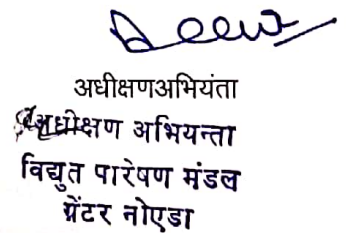 अधीक्षणअभियंता
अधीक्षण अभियन्ता
विद्युत पारेषण मंडल
ग्रेंटर नोएडा